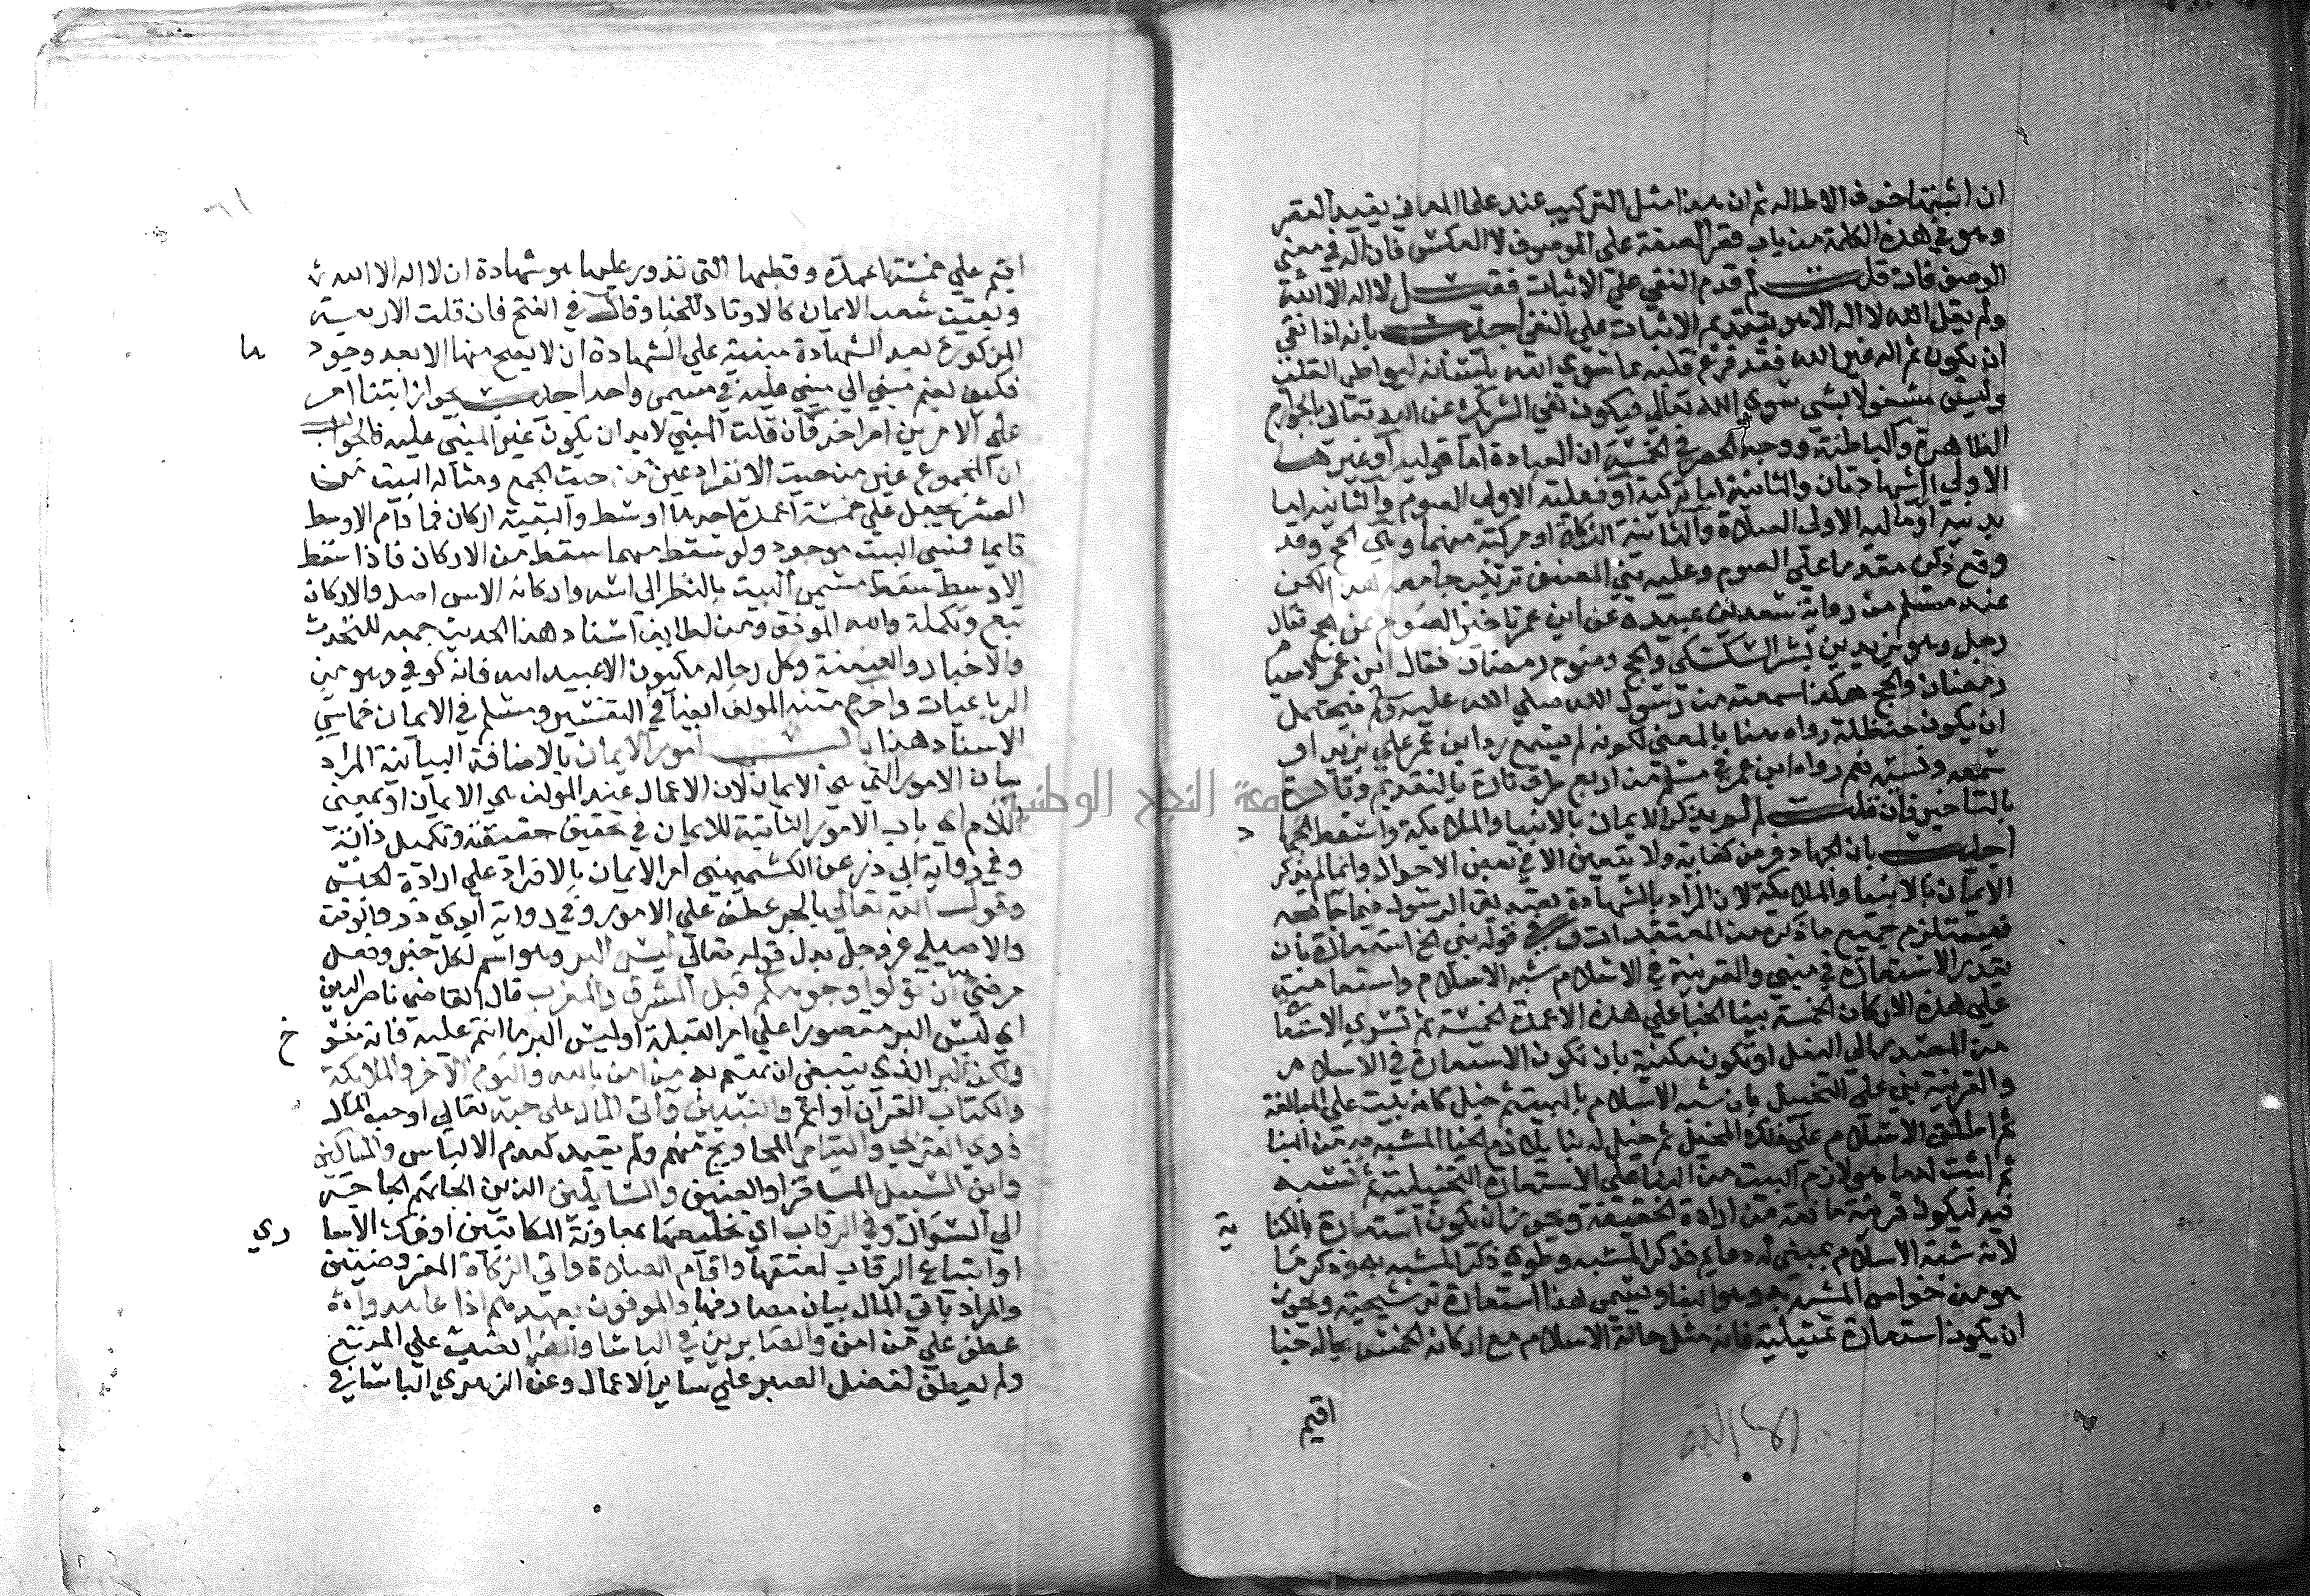 ان اثبتها خوف الاطاله ثم ان هذا مثل التركيب عند علما المعاني يفيد القصر
وهو في هذه الكلمة من باب قصر الصفة على الموصوف لا العكس فان اله في معنى
الوصف فان قلت لم قدم النفي على الاثبات فقيل لا اله الا الله
ولم يقل الله لا اله الا هو بتقديم الاثبات على النفي اجيب بانه اذا نفى
ان يكون ثم اله غير الله فقد فرغ قلبه مما سوى الله بلسانه ليواطي القلب
وليس مشغولا بشي سوى الله تعالى فيكون نفي الشريك عن الله تعالى بالجوارح
الظاهرة والباطنة ووجه الحصر في الخمسة ان العبادة اما قولية او غيرها
الاولى الشهادتان والثانية اما تركية او فعلية الاولى الصوم والثانية اما
بدنية او مالية الاولى الصلاة والثانية الزكاة او مركبة منهما وهي الحج وقد
وقع ذكره مقدما على الصوم وعليه بنى المصنف ترتيب جامعه لكن
عند مسلم من رواية سعد بن عبيدة عن ابن عمر تاخير الصوم عن الحج فقال
رجل وهو يزيد بن بشر السكسكي والحج وصوم رمضان فقال ابن عمر لا صيام
رمضان والحج هكذا سمعته من رسول الله صلى الله عليه وسلم فيحتمل
ان يكون حنظلة رواه هنا بالمعنى لكونه لم يسمع رد ابن عمر على يزيد او
سمعه ونسيه نعم رواه ابن عمر في مسلم من اربع طرق تارة بالتقديم وتارة
بالتاخير فان قلت لم لم يذكر الايمان بالانبيا والملايكة واسقط الجها د
اجيب بان الجهاد فرض كفاية ولا يتعين الا في بعض الاحوال وانما لم يذكر
الايمان بالانبيا والملايكة لان المراد بالشهادة تصديق الرسول فيما جا به
فيستلزم جميع ما ذكر من المعتقدات وفي قوله بني الخ استعارة بان
يقدر الاستعارة في بني والقرينة في الاسلام شبه الاسلام واستقامته
على هذه الاركان الخمسة ببنا الخبا على هذه الاعمدة الخمسة ثم تسري الاستعا
من المصدر الى الفعل او تكون مكنية بان تكون الاستعارة في الاسلام
والقرينة بني على التخييل بان شبه الاسلام بالبيت ثم خيل كانه بيت على المبالغة
ثم اطلق الاسلام على ذلك المخيل ثم خيل له ما يلازم الخبا المشبه به من البنا
ثم اثبت له ما هو لازم البيت من البنا على الاستعارة التخييلية ثم نسبه
فيه ليكون قرينة مانعة من ارادة الحقيقة ويجوز ان يكون استعارة بالكنا ية
لانه شبه الاسلام بمبنى له دعايم فذكر المشبه وطوى ذكر المشبه به وذكر ما
هو من خواص المشبه به وهو البنا ويسمى هذا استعارة ترشيحية ويجوز
ان يكون استعارة تمثيلية فانه مثل حالة الاسلام مع اركانه الخمس بحاله خبا
اقيم
اقيم على خمسة اعمدة وقطبها التي تدور عليها هو شهادة ان لا اله الا الله
وبقيت شعب الايمان كالاوتاد للخبا وقال في الفتح فان قلت الاربعة
المذكورة بعد الشهادة مبنية على الشهادة ان لا يصح منها الا بعد وجود ها
فكيف يضم مبني الى مبني عليه في مسمى واحد اجيب بجواز ابتنا امر
على الامرين امر اخر فان قلت المبني لابد ان يكون غير المبني عليه فالجواب
ان المجموع غير من حيث الانفراد عين من حيث الجمع ومثاله البيت من
الشعر يجعل على خمسة اعمدة احدها اوسط والبقية اركان فما دام الاوسط
قايما فمسمى البيت موجود ولو سقط مهما سقط من الاركان فاذا سقط
الاوسط سقط مسمى البيت بالنظر الى اسه واركانه الاس اصل والاركان
تبع وتكملة والله الموفق ومن لطايف اسناد هذا الحديث جمعه للتحديث
والاخبار والعنعنة وكل رجاله مكيون الا عبيد الله فانه كوفي وهو من
الرباعيات واخرج متنه المولف ايضا في التفسير ومسلم في الايمان خماسي
الاسناد هذا باب امور الايمان بالاضافة البيانية المراد
بيان الامور التي هي الايمان لان الاعمال عند المولف هي الايمان او بمعنى
اللام اي باب الامور الثابتة للايمان في تحقيق حقيقته وتكميل ذاته
وفي رواية ابي ذر عن الكشميهني امر الايمان بالافراد على ارادة الجنس
وقول الله تعالى بالجر عطف على الامور وفي رواية ابوي ذر والوقت
والاصيلي عز وجل بدل قوله تعالى ليس البر وهو اسم لكل خير وفعل
مرضي ان تولوا وجوهكم قبل المشرق والمغرب قال القاضي ناصر الدين
اي ليس البر مقصورا على امر القبلة او ليس البر ما انتم عليه فانه منسو خ
ولكن البر الذي ينبغي ان يهتم به من امن بالله واليوم الاخر والملايكة
والكتاب القرآن او اعم والنبيين واتى المال على حبه تعالى او حب المال
ذوي القربى واليتامى المحاويج منهم ولم يقيد لعدم الالباس والمساكين
وابن السبيل المسافر او الضيف والسايلين الذين الجاتهم الحاجة
الى السوال وفي الرقاب اي تخليصها بمعاونة المكاتبين او فك الاسا ري
او ابتياع الرقاب لعتقها واقام الصلاة واتى الزكاة المفروضتين
والمراد باتى المال بيان مصارفها والموفون بعهدهم اذا عاهدوا
عطف على من امن والصابرين في الباسا والضرا نصب على المدح
ولم يعطف لفضل الصبر على ساير الاعمال وعن الازهري الباسا في
جامعة النجاح الوطنية